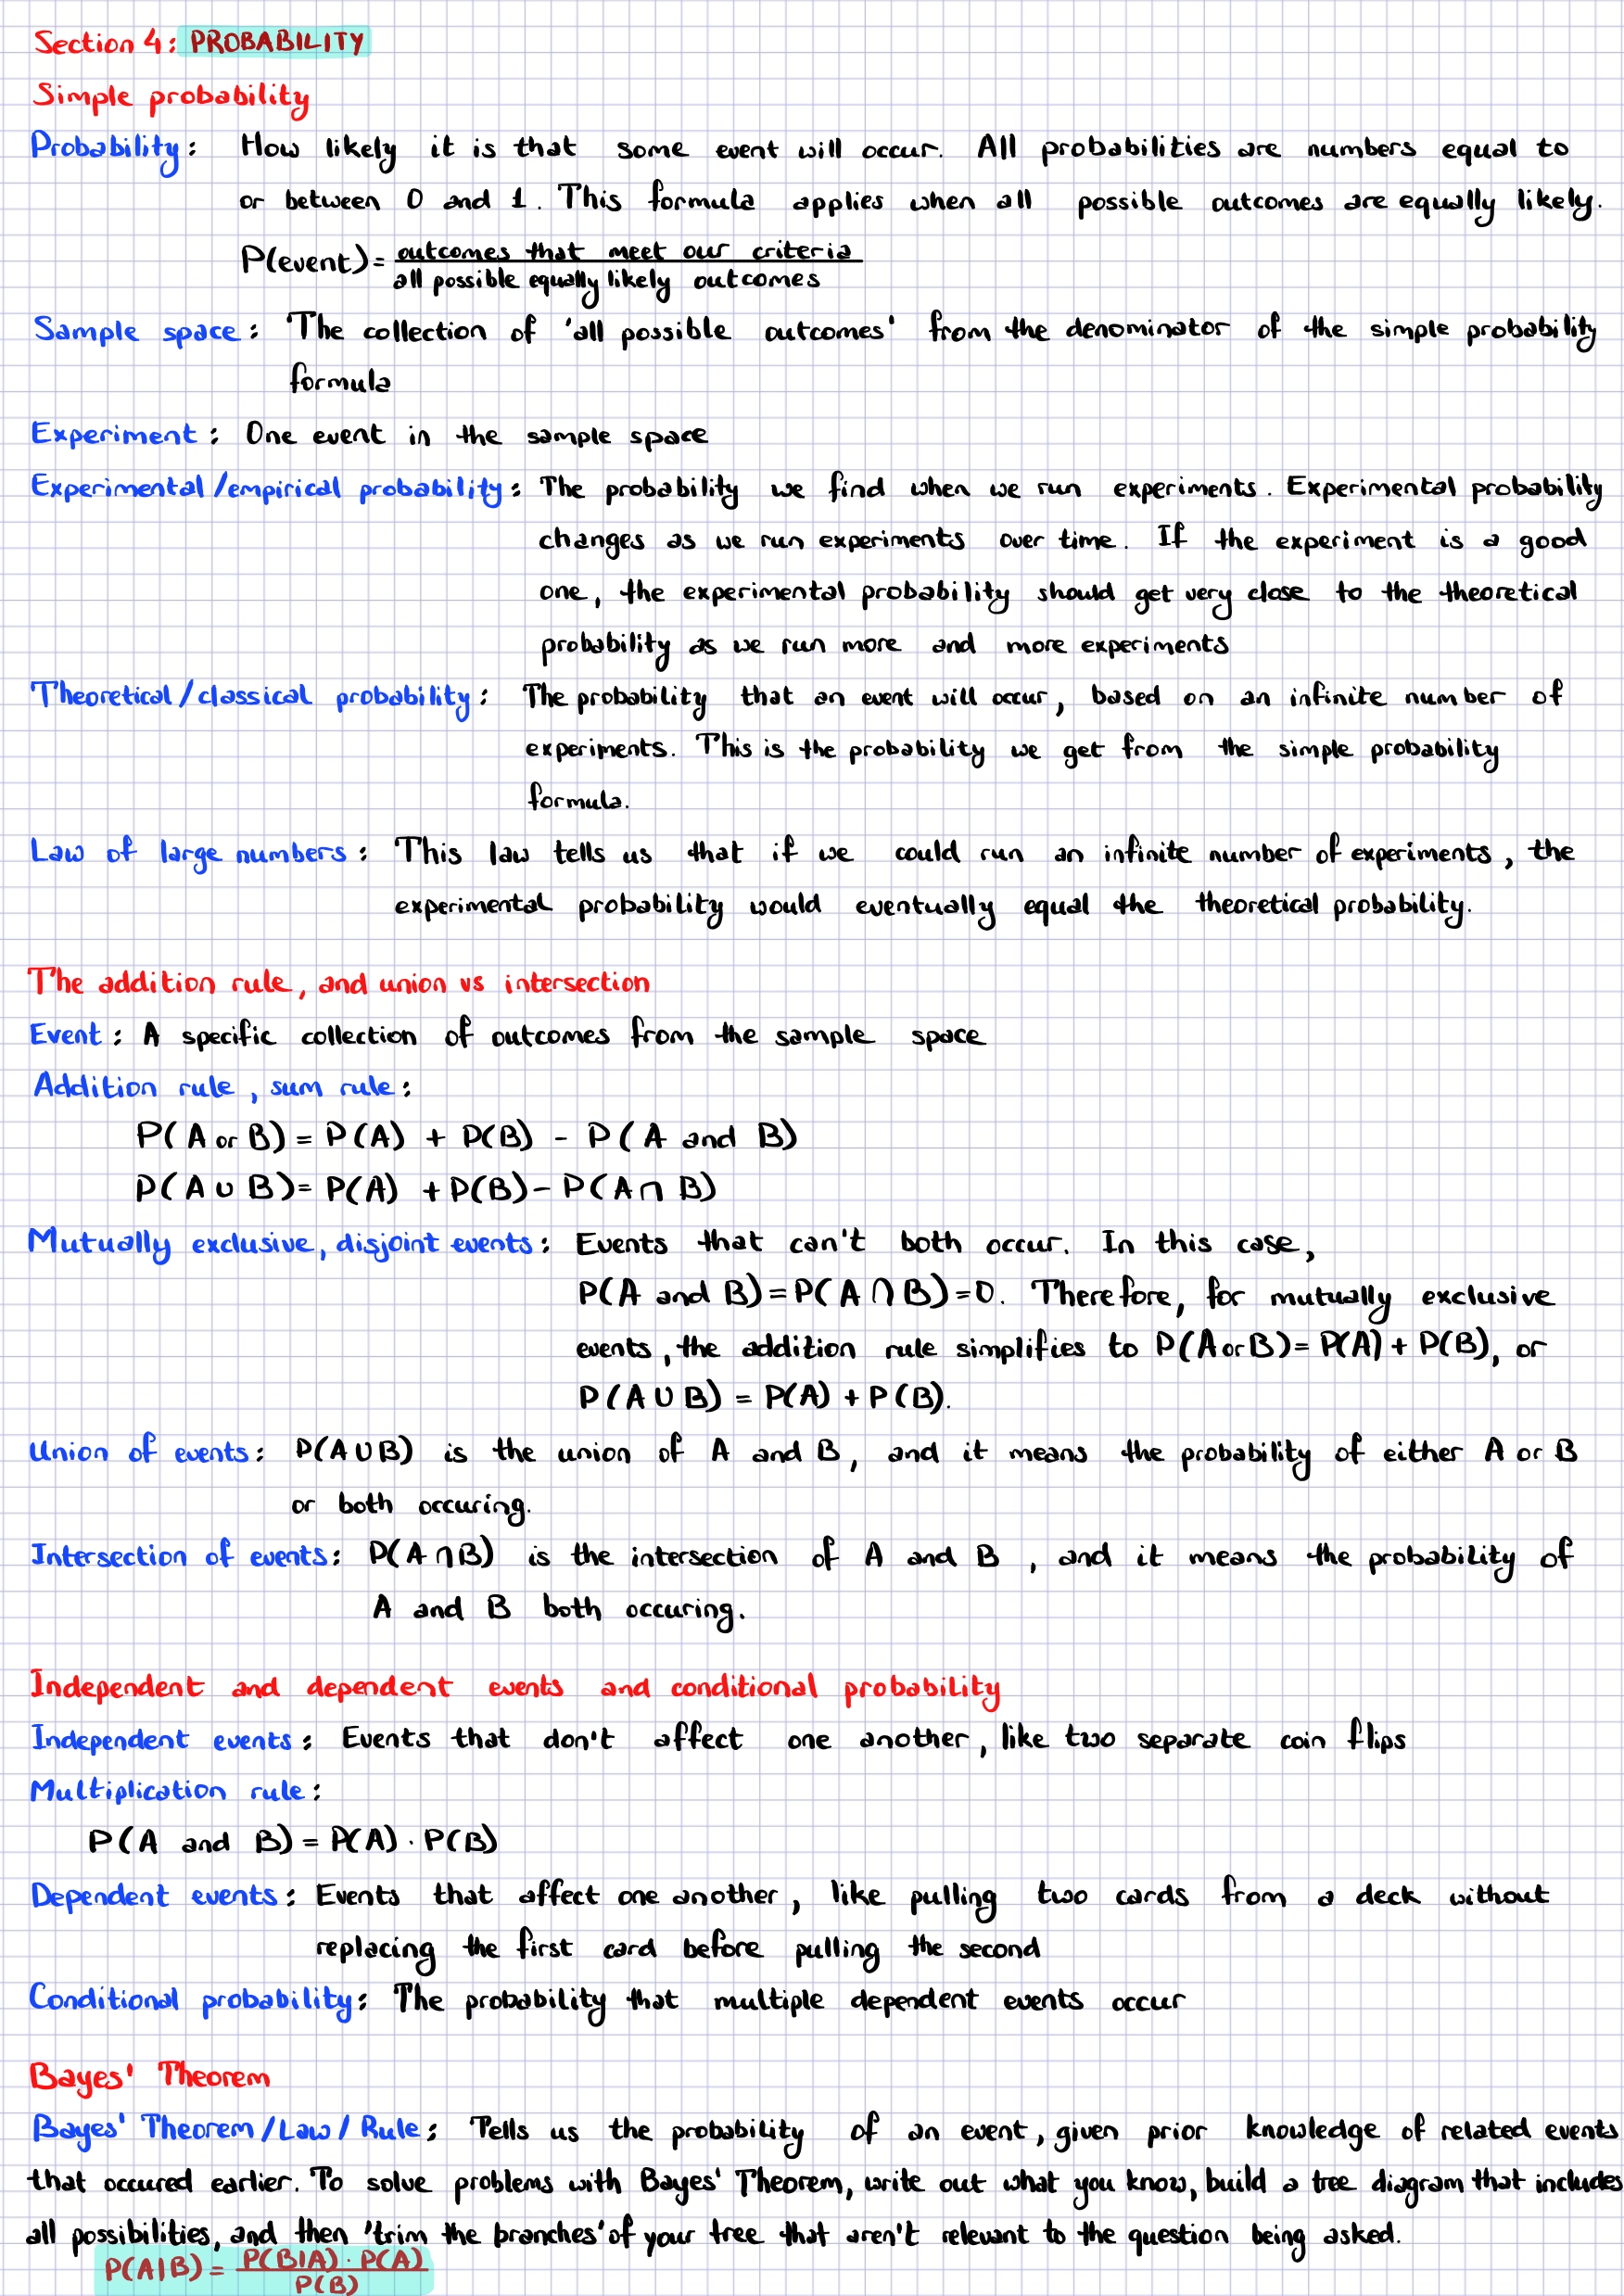 Section 4: PROBABILITY
Simple probability
Probability: How likely it is that some event will occur. All probabilities are numbers equal to
or between 0 and 1. This formula applies when all possible outcomes are equally likely.
P(event) = outcomes that meet our criteria
all possible equally likely outcomes
Sample space: 'The collection of 'all possible outcomes' from the denominator of the simple probability
formula
Experiment: One event in the sample space
Experimental/empirical probability: The probability we find when we run experiments. Experimental probability
changes as we run experiments over time. If the experiment is a good
one, the experimental probability should get very close to the theoretical
probability as we run more and more experiments
Theoretical/classical probability: The probability that an event will occur, based on an infinite number of
experiments. This is the probability we get from the simple probability
formula.
Law of large numbers: This law tells us that if we could run an infinite number of experiments, the
experimental probability would eventually equal the theoretical probability.
The addition rule, and union vs intersection
Event: A specific collection of outcomes from the sample space
Addition rule, sum rule:
P(A or B) = P(A) + P(B) - P(A and B)
P(A ∪ B) = P(A) + P(B) - P(A ∩ B)
Mutually exclusive, disjoint events: Events that can't both occur. In this case,
P(A and B) = P(A ∩ B) = 0. Therefore, for mutually exclusive
events, the addition rule simplifies to P(A or B) = P(A) + P(B), or
P(A ∪ B) = P(A) + P(B).
Union of events: P(A ∪ B) is the union of A and B, and it means the probability of either A or B
or both occuring.
Intersection of events: P(A ∩ B) is the intersection of A and B, and it means the probability of
A and B both occuring.
Independent and dependent events and conditional probability
Independent events: Events that don't affect one another, like two separate coin flips
Multiplication rule:
P(A and B) = P(A) · P(B)
Dependent events: Events that affect one another, like pulling two cards from a deck without
replacing the first card before pulling the second
Conditional probability: The probability that multiple dependent events occur
Bayes' Theorem
Bayes' Theorem/Law/Rule: Tells us the probability of an event, given prior knowledge of related events
that occured earlier. To solve problems with Bayes' Theorem, write out what you know, build a tree diagram that includes
all possibilities, and then 'trim the branches' of your tree that aren't relevant to the question being asked.
P(A|B) = P(B|A) · P(A)
P(B)